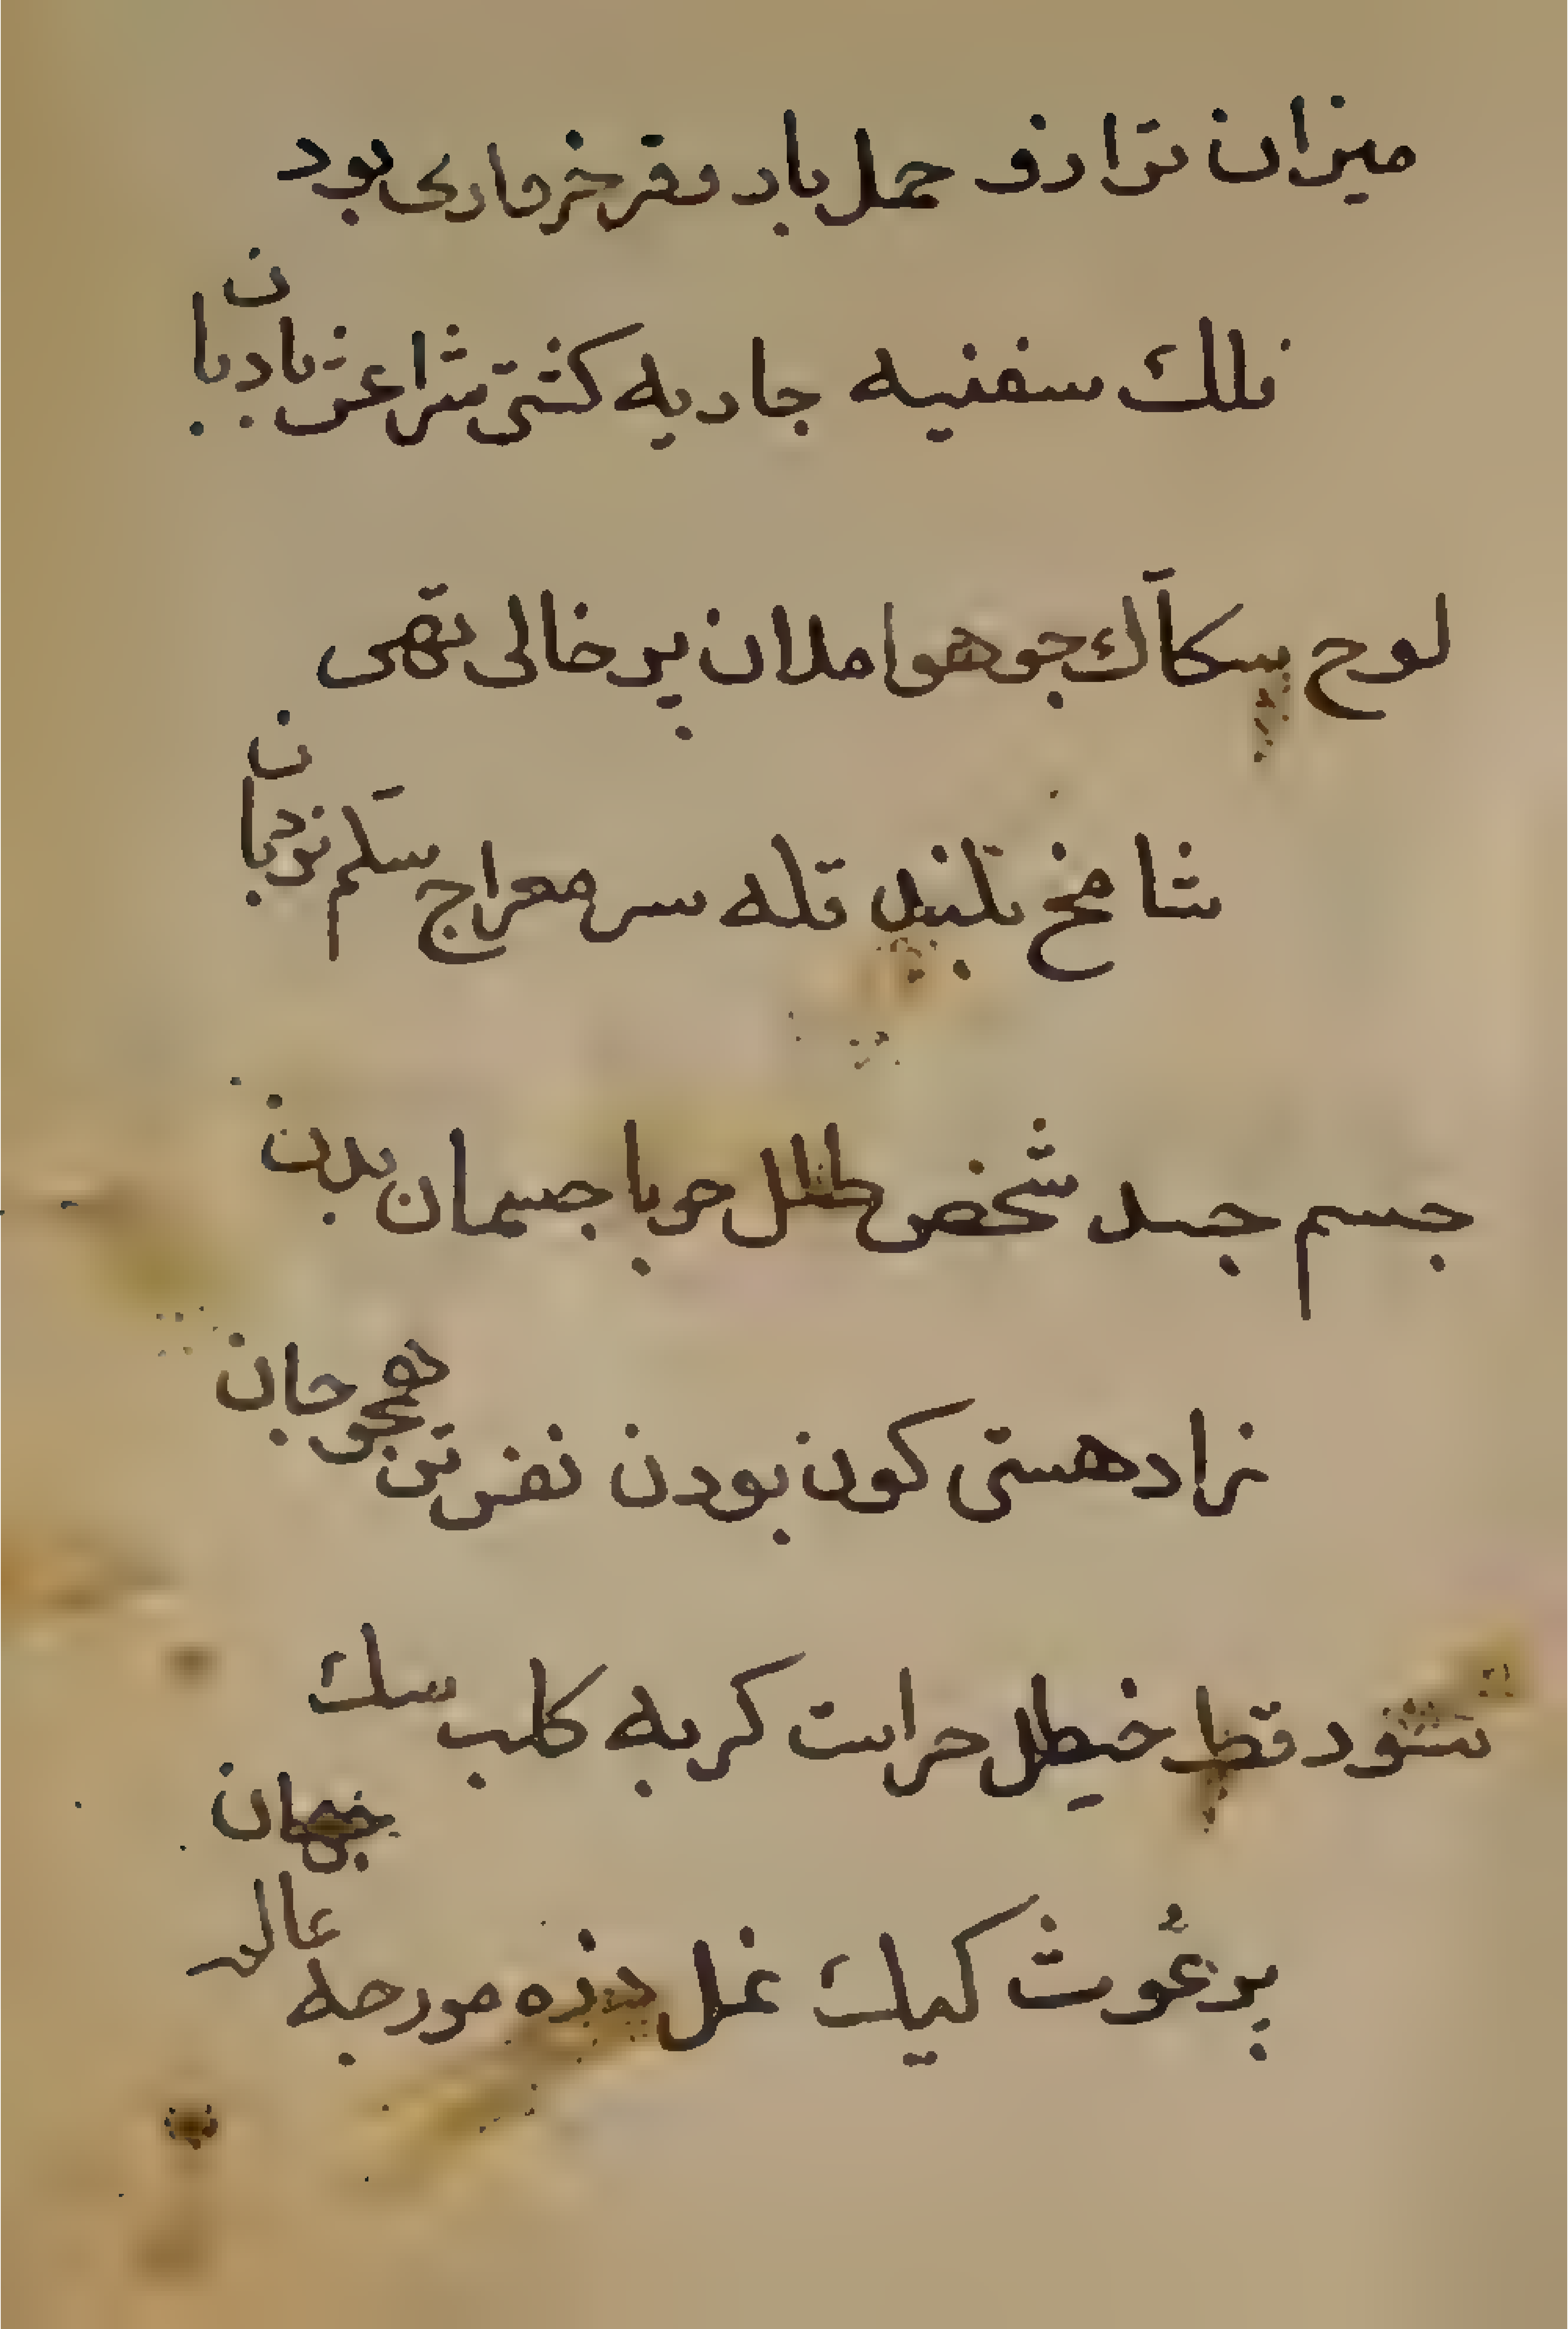 میزان ترازو حمل بار وقر خرواری بود
فلك سفنیه جاریه كشتی شراعش بادبان
لوح سكاك جو هوا ملان پر خالی تهی
شامخ بلند قله سر معراج سلم نردبان
جسم جسد شخص طلل حوبا جسمان بدن
نژاد هستی كون بودن نفس تن همچو جان
سنور قط خیطل حراست كربه كلب سك
برغوث كیك نمل ذره مورجه عالم جهان